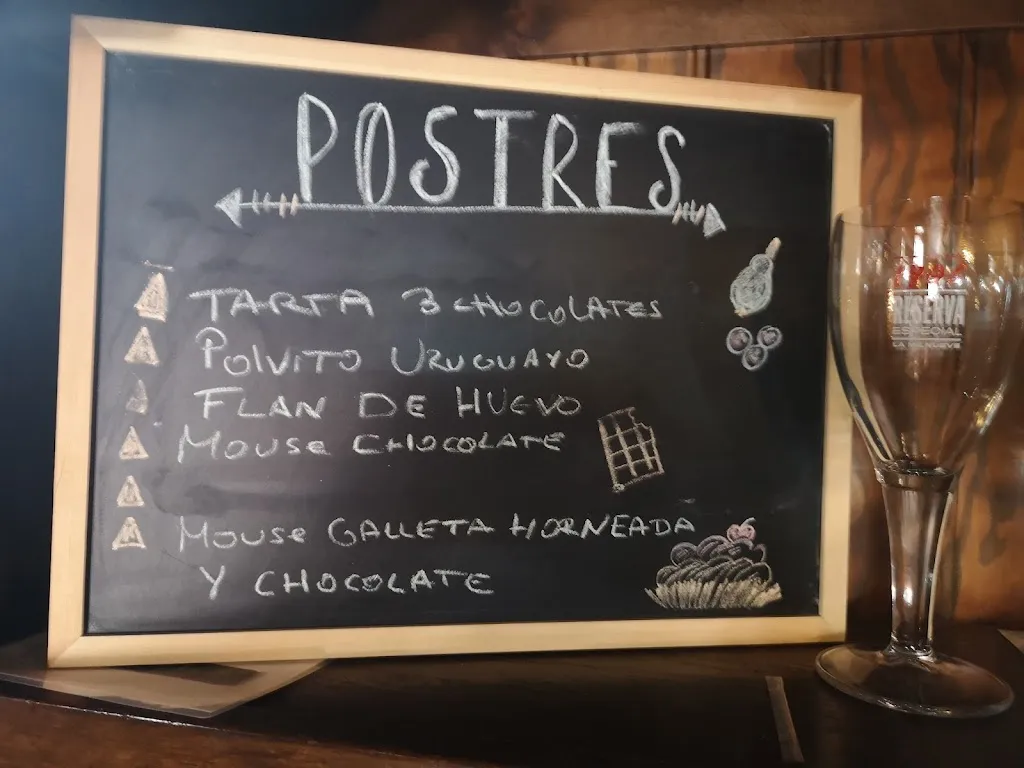 POSTRES
TARTA 3 CHOCOLATES
POLVITO URUGUAYO
FLAN DE HUEVO
MOUSE CHOCOLATE
MOUSE GALLETA HORNEADA
Y CHOCOLATE
RESERVA
ESPECIAL